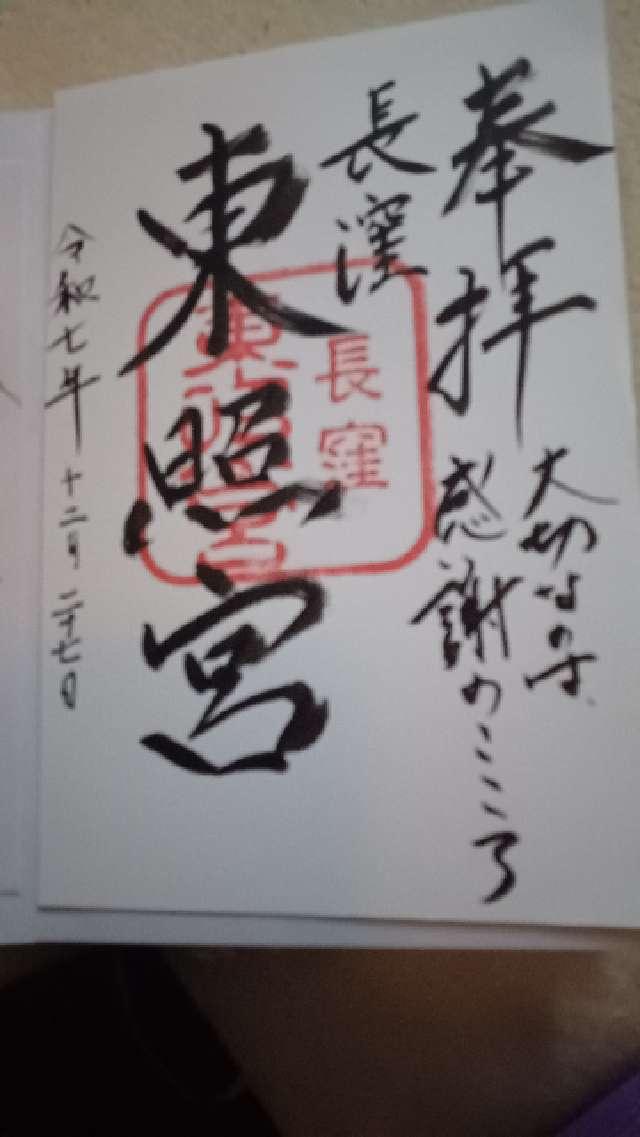 奉拝
大切なのは、
感謝のこころ
長窪
東照宮
長窪
東照宮
令和七年 十二月 二十七日